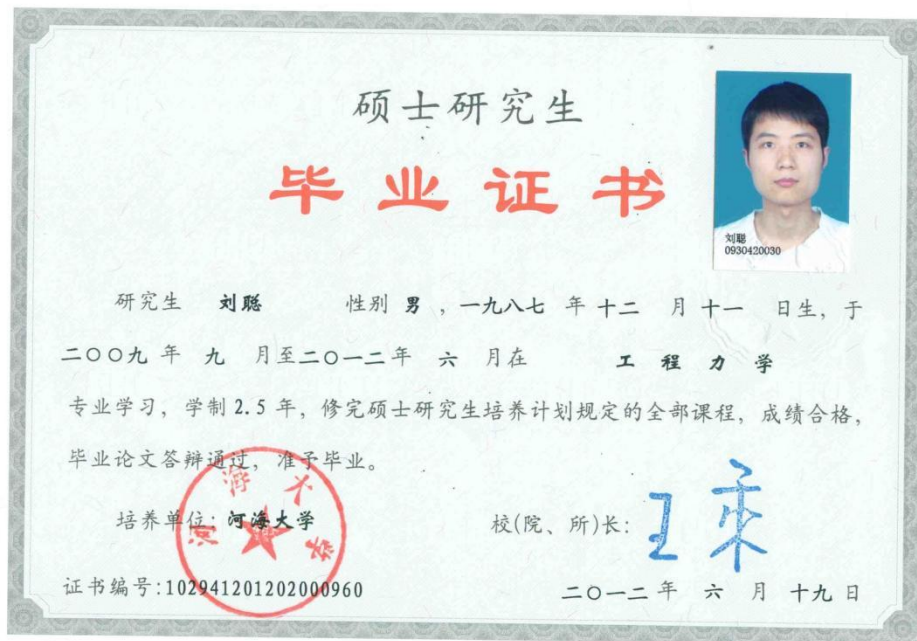 硕士研究生
毕业证书
刘聪
0930420030
研究生 刘聪 性别 男 , 一九八七 年 十二 月 十一 日生, 于
二〇〇九 年 九 月至二〇一二年 六 月在 工程力学
专业学习, 学制 2.5 年, 修完硕士研究生培养计划规定的全部课程, 成绩合格,
毕业论文答辩通过, 准予毕业。
河海大学
培养单位: 河海大学 校(院、所)长: 王乘
证书编号:102941201202000960 二〇一二 年 六 月 十九 日